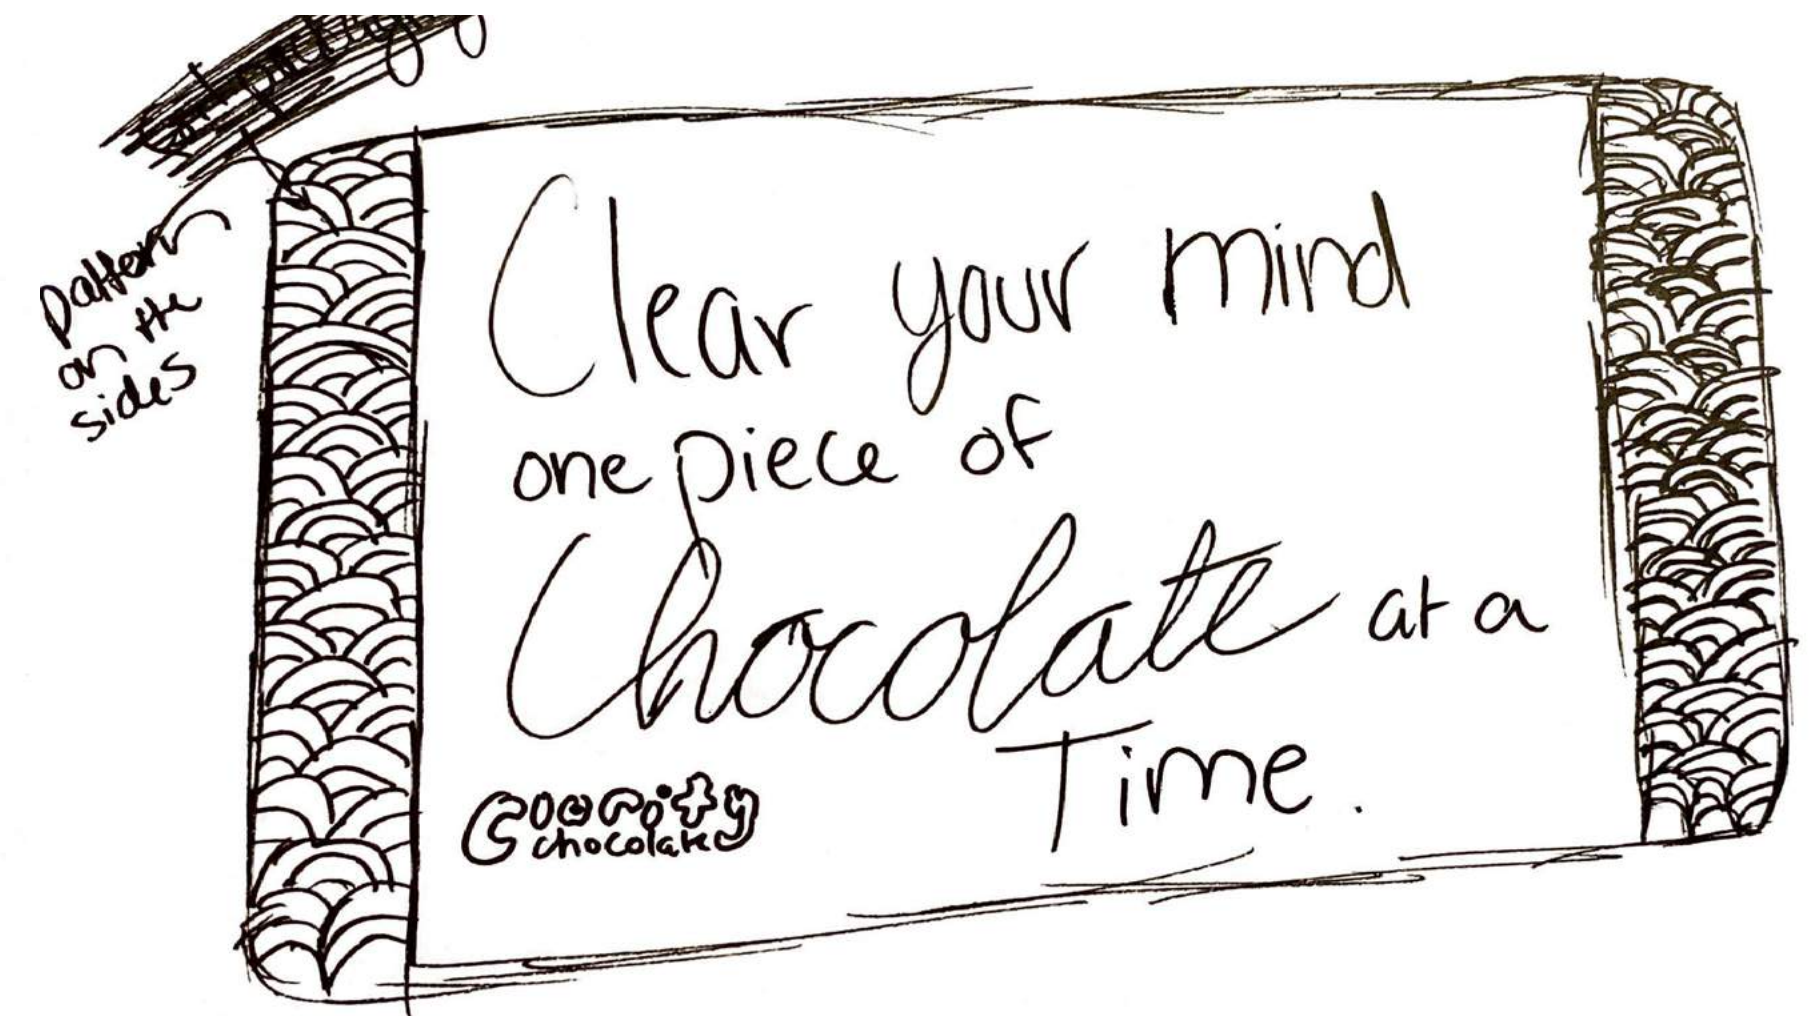 pattern
on the
sides
Clear your mind
one piece of
Chocolate at a
Time.
chocolate